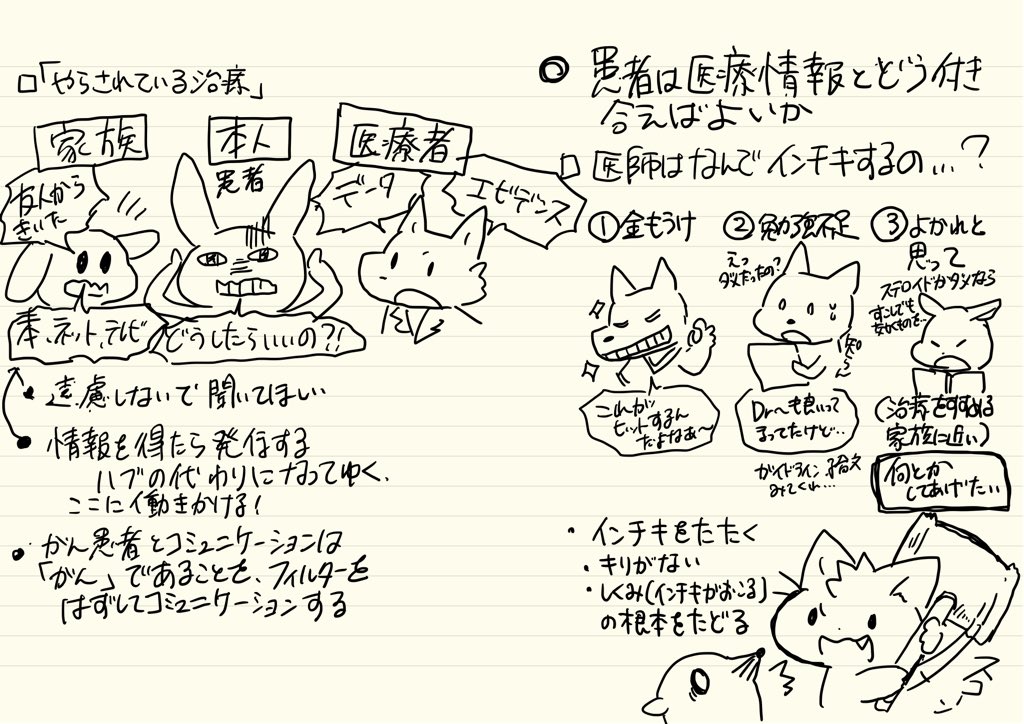 □「やらされている治療」
家族
本人
患者
医療者
友人から
きいた
データ
エビデンス
本、ネット、テレビ
どうしたらいいの?!
遠慮しないで聞いてほしい
情報を得たら発信する
ハブの代わりになってゆく、
ここに働きかける!
がん患者とコミュニケーションは
「がん」であることを、フィルターを
はずしてコミュニケーションする
◎ 患者は医療情報とどう付き
合えばよいか
□ 医師はなんでインチキするの…?
①金もうけ
②勉強不足
③よかれと
思って
えっ
ダメだったの?
ステロイドがダメなら
すこしでも
知らん
これが
ヒットするん
だよなあ〜
Dr〜も良いって
言ってたけど…
ガイドライン、論文
みてくれ…
(治療をすすめる
家族に近い)
何とか
してあげたい
・インチキをたたく
・キリがない
・しくみ(インチキがおこる)
の根本をたどる